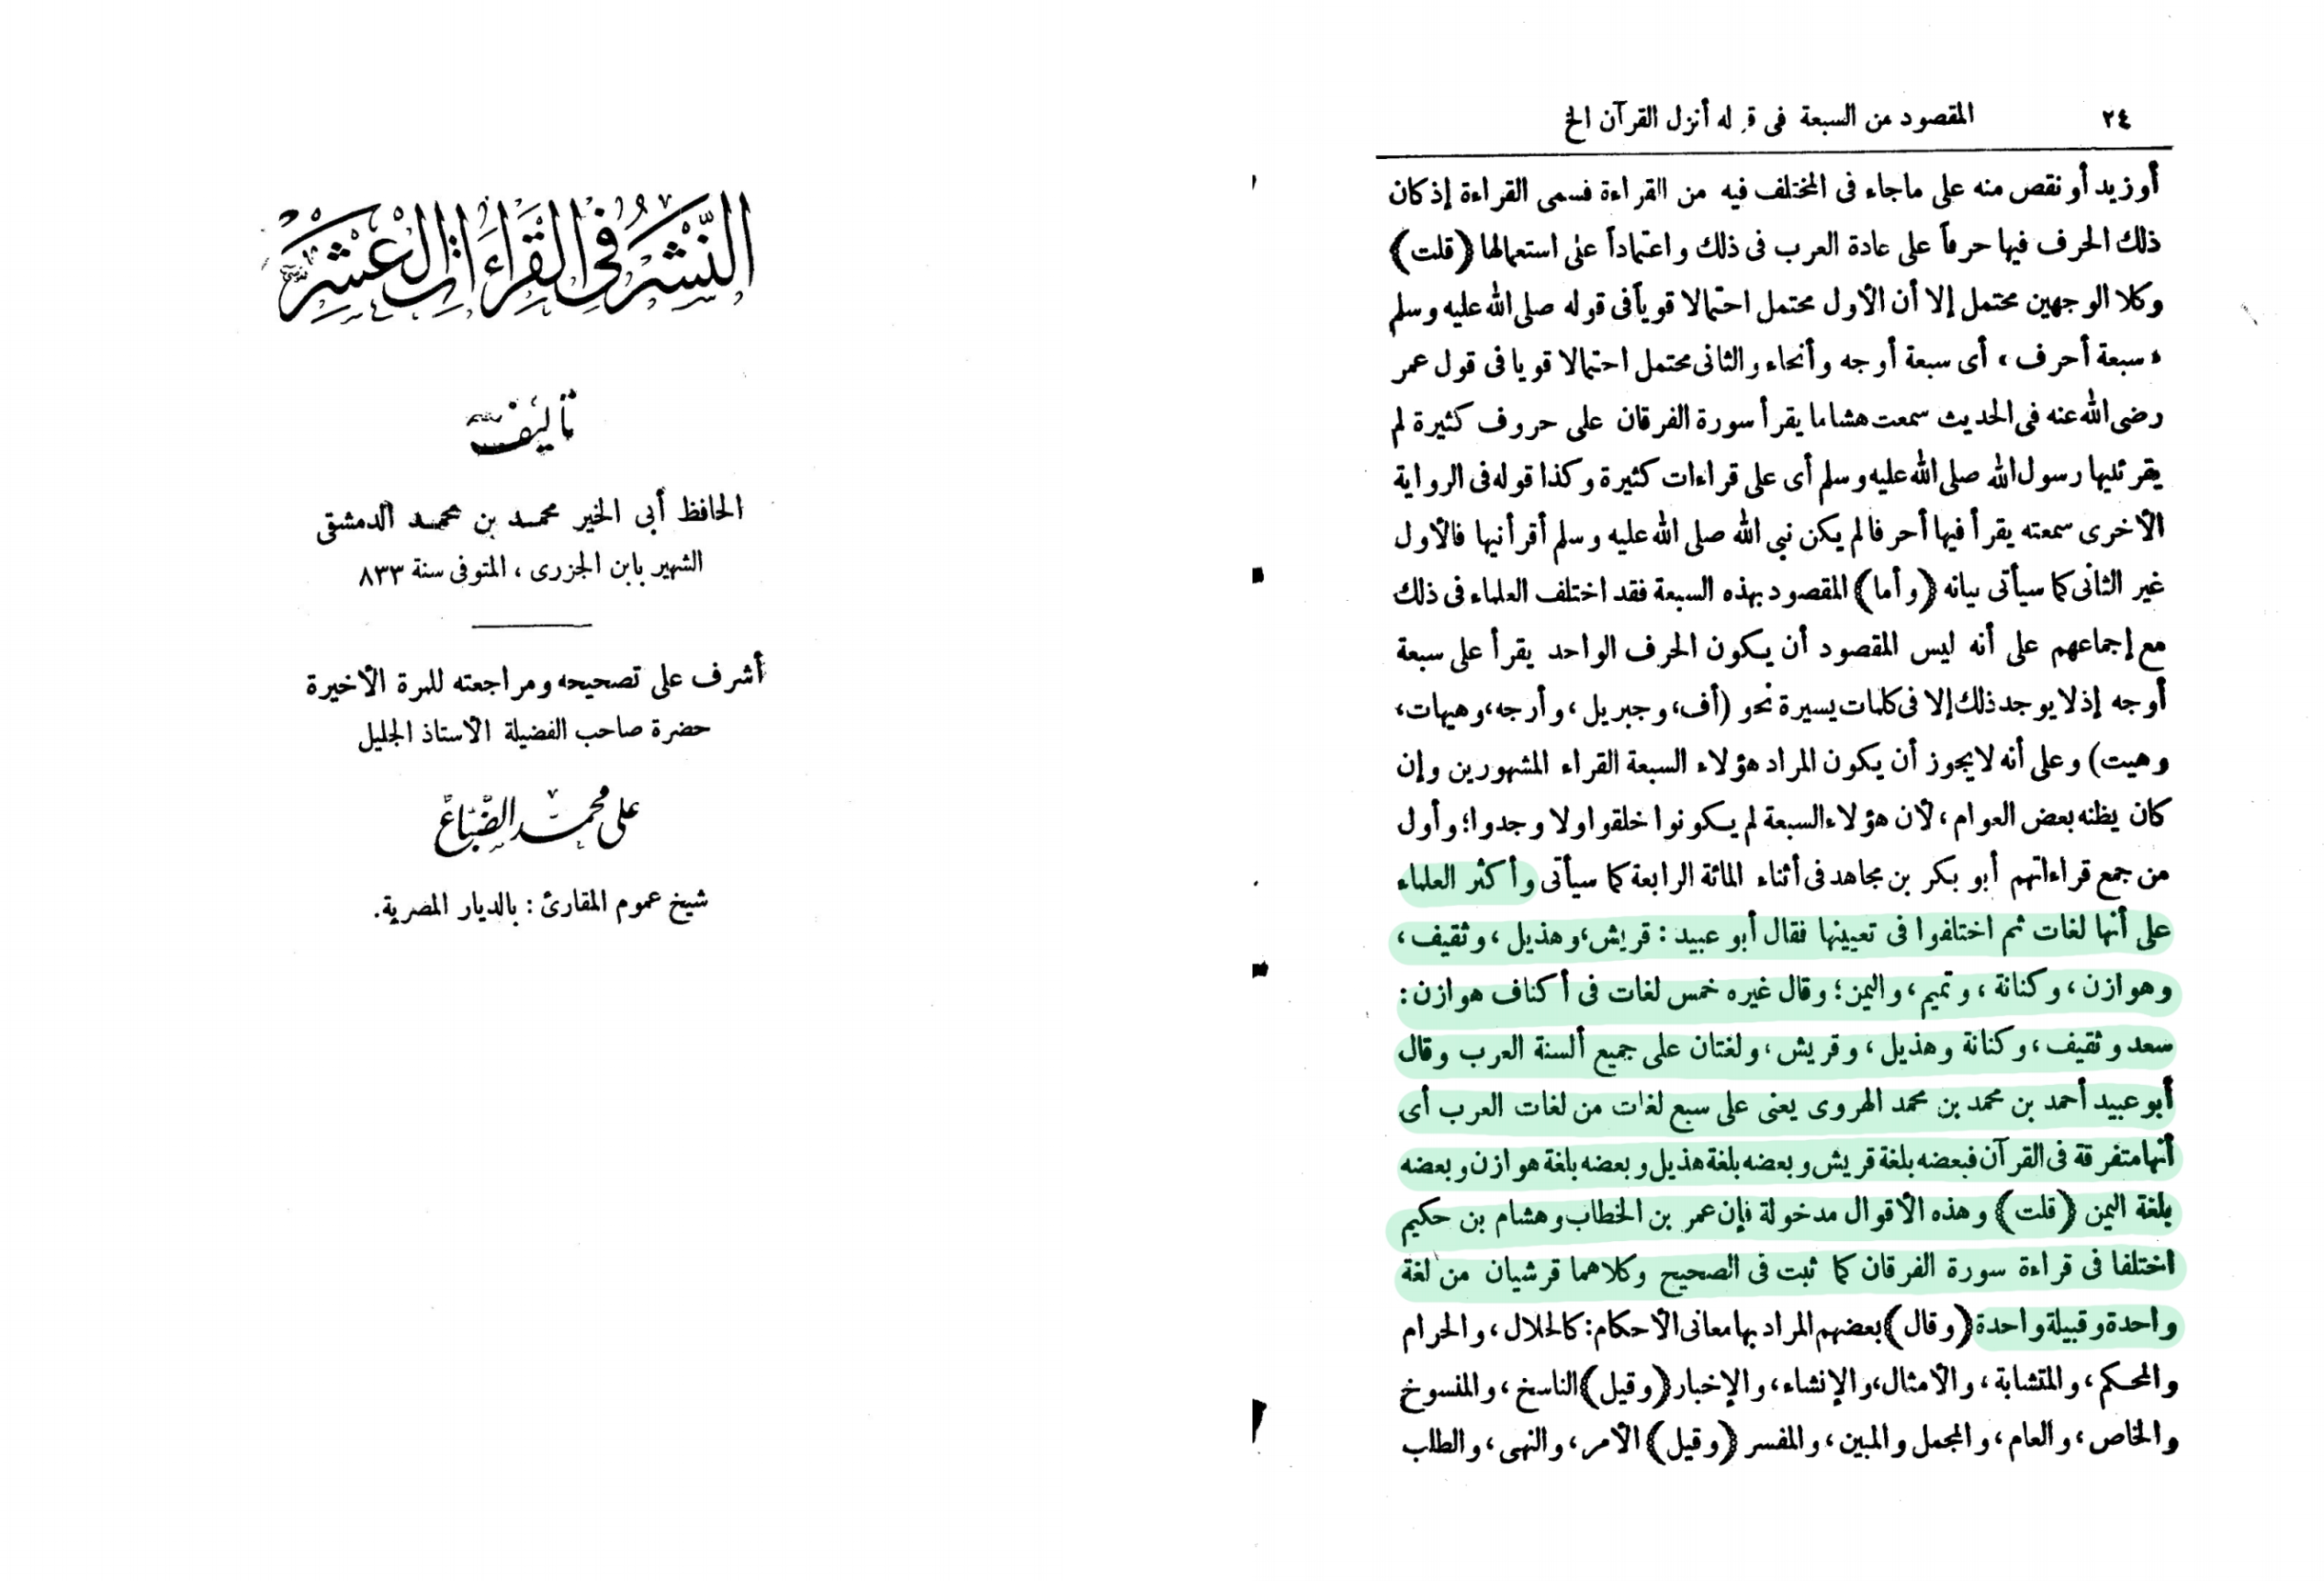 المقصود من السبعة فى قوله أنزل القرآن الخ ٢٤
أو زيد أو نقص منه على ما جاء فى المختلف فيه من القراءة فسمى القراءة إذ كان
ذلك الحرف فيها حرفاً على عادة العرب فى ذلك واعتماداً على استعمالها (قلت)
وكلا الوجهين محتمل إلا أن الأول محتمل احتمالا قوياً فى قوله صلى الله عليه وسلم
«سبعة أحرف» أى سبعة أوجه وأنحاء والثانى محتمل احتمالا قويا فى قول عمر
رضى الله عنه فى الحديث سمعت هشاما يقرأ سورة الفرقان على حروف كثيرة لم
يقرئنيها رسول الله صلى الله عليه وسلم أى على قراءات كثيرة وكذا قوله فى الرواية
الأخرى سمعته يقرأ فيها أحرفا لم يكن نبي الله صلى الله عليه وسلم أقرأنيها فالأول
غير الثانى كما سيأتى بيانه (وأما) المقصود بهذه السبعة فقد اختلف العلماء فى ذلك
مع إجماعهم على أنه ليس المقصود أن يكون الحرف الواحد يقرأ على سبعة
أوجه إذ لا يوجد ذلك إلا فى كلمات يسيرة نحو (أف، وجبريل، وأرجه، وهيهات،
وهيت) وعلى أنه لا يجوز أن يكون المراد هؤلاء السبعة القراء المشهورين وإن
كان يظنه بعض العوام، لأن هؤلاء السبعة لم يكونوا خلقوا ولا وجدوا؛ وأول
من جمع قراءاتهم أبو بكر بن مجاهد فى أثناء المائة الرابعة كما سيأتى وأكثر العلماء
على أنها لغات ثم اختلفوا فى تعيينها فقال أبو عبيد: قريش، وهذيل، وثقيف،
وهوازن، وكنانة، وتميم، واليمن؛ وقال غيره خمس لغات فى أكناف هوازن:
سعد وثقيف، وكنانة وهذيل، وقريش، ولغتان على جميع ألسنة العرب وقال
أبو عبيد أحمد بن محمد بن محمد الهروى يعنى على سبع لغات من لغات العرب أى
أنها متفرقة فى القرآن فبعضه بلغة قريش وبعضه بلغة هذيل وبعضه بلغة هوازن وبعضه
بلغة اليمن (قلت) وهذه الأقوال مدخولة فإن عمر بن الخطاب وهشام بن حكيم
اختلفا فى قراءة سورة الفرقان كما ثبت فى الصحيح وكلاهما قرشيان من لغة
واحدة وقبيلة واحدة (وقال) بعضهم المراد بها معانى الأحكام: كالحلال، والحرام
والمحكم، والمتشابة، والأمثال، والإنشاء، والإخبار (وقيل) الناسخ، والمنسوخ
والخاص، والعام، والمجمل والمبين، والمفسر (وقيل) الأمر، والنهى، والطلب
النَّشْرُ فِي القِرَاءَاتِ العَشْرِ
تأليف
الحافظ أبى الخير محمد بن محمد الدمشقى
الشهير بابن الجزرى، المتوفى سنة ٨٣٣
أشرف على تصحيحه ومراجعته للمرة الأخيرة
حضرة صاحب الفضيلة الأستاذ الجليل
على محمد الضباع
شيخ عموم المقارئ: بالديار المصرية.